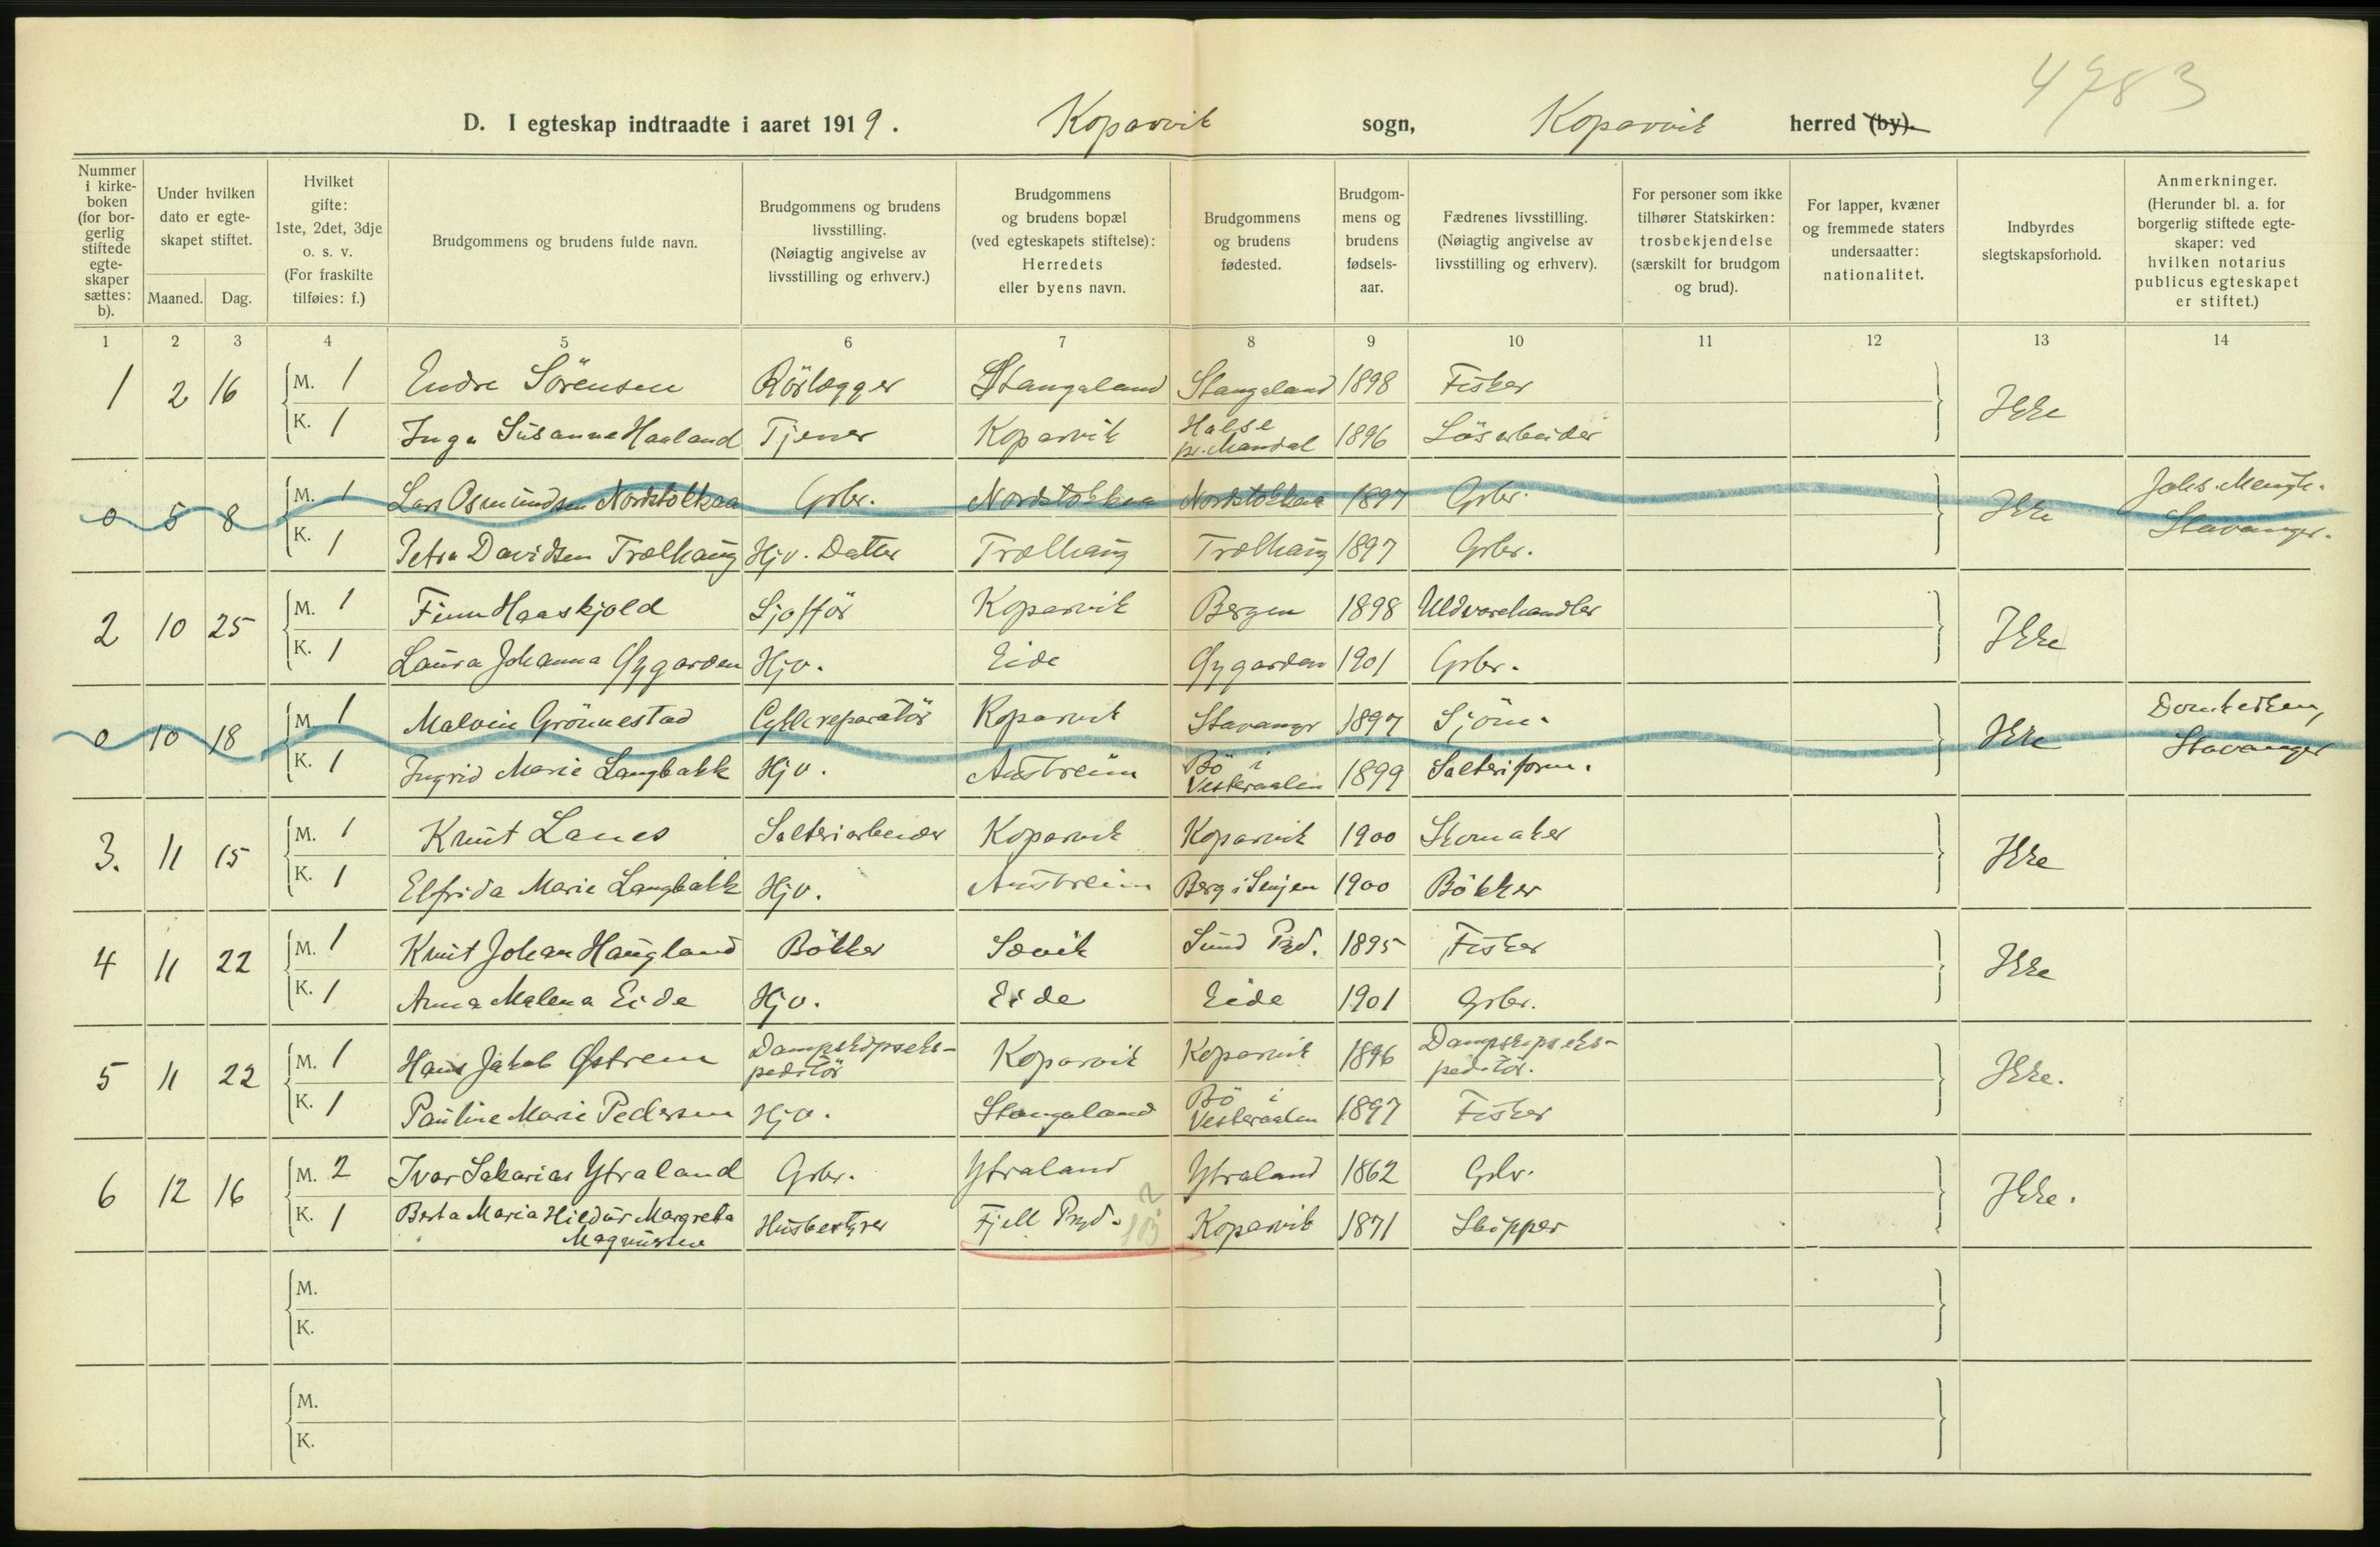 4783
D. I egteskap indtraadte i aaret 1919. Kopervik sogn, Kopervik herred (by).
Nummer i kirke-boken (for bor-gerlig stiftede egte-skaper sættes: b).
Under hvilken dato er egte-skapet stiftet.
Maaned. Dag.
Hvilket gifte: 1ste, 2det, 3dje o. s. v. (For fraskilte tilføies: f.)
Brudgommens og brudens fulde navn.
Brudgommens og brudens livsstilling. (Nøiagtig angivelse av livsstilling og erhverv.)
Brudgommens og brudens bopæl (ved egteskapets stiftelse): Herredets eller byens navn.
Brudgommens og brudens fødested.
Brudgom-mens og brudens fødsels-aar.
Fædrenes livsstilling. (Nøiagtig angivelse av livsstilling og erhverv).
For personer som ikke tilhører Statskirken: trosbekjendelse (særskilt for brudgom og brud).
For lapper, kvæner og fremmede staters undersaatter: nationalitet.
Indbyrdes slegtskapsforhold.
Anmerkninger. (Herunder bl. a. for borgerlig stiftede egte-skaper: ved hvilken notarius publicus egteskapet er stiftet.)
1 2 3 4 5 6 7 8 9 10 11 12 13 14
1 2 16 M. 1 Endre Sörensen Rörlægger Stangaland Stangaland 1898 Fisker Ikke
K. 1 Inga Susanna Haaland Tjener Kopervik Halse pr. Mandal 1896 Lösarbeider
0 5 8 M. 1 Lars Osmundsen Nordstokkaa Grbr. Nordstokkaa Nordstokkaa 1897 Grbr. Ikke Johs. Stavanger.
K. 1 Petra Davidsen Trælhaug Hjv. Datter Trælhaug Trælhaug 1897 Grbr.
2 10 25 M. 1 Finn Haaskjold Sjofför Kopervik Bergen 1898 Uldvarehandler Ikke
K. 1 Laura Johanna Øygarden Hjv. Eide Øygarden 1901 Grbr.
0 10 18 M. 1 Malvin Grönnestad Cyklereparatör Kopervik Stavanger 1897 Sjöm. Ikke Domkirken, Stavanger
K. 1 Ingrid Marie Langbakk Hjv. Austreim Bö i Vesteraalen 1899 Salteriform.
3. 11 15 M. 1 Knut Lanes Salteriarbeider Kopervik Kopervik 1900 Skomaker Ikke
K. 1 Elfrida Marie Langbakk Hjv. Austreim Berg i Senjen 1900 Bökker
4 11 22 M. 1 Knut Johan Haugland Bökker Sævik Sund Pgd. 1895 Fisker Ikke
K. 1 Anna Malena Eide Hjv. Eide Eide 1901 Grbr.
5 11 22 M. 1 Hans Jakob Østrem Dampskipseks-peditör Kopervik Kopervik 1896 Dampskipseks-peditör. Ikke.
K. 1 Pauline Marie Pedersen Hjv. Stangaland Bö i Vesteraalen 1897 Fisker
6 12 16 M. 2 Ivar Sakarias Ytraland Grbr. Ytraland Ytraland 1862 Grbr. Ikke.
K. 1 Berta Maria Hildur Margreta Magnussen Husbestyrer Fjell Pgd. Kopervik 1871 Skipper
M.
K.
M.
K.